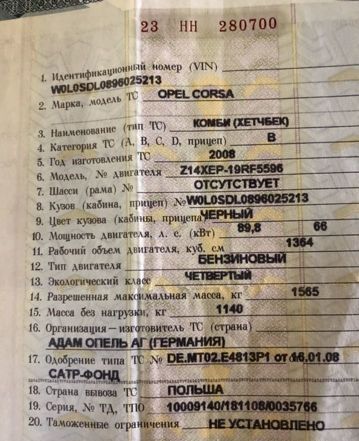 23 НН 280700
1. Идентификационный номер (VIN)
W0L0SDL0896025213
2. Марка, модель ТС OPEL CORSA
3. Наименование (тип ТС) КОМБИ (ХЕТЧБЕК)
4. Категория ТС (А, В, С, D, прицеп) B
5. Год изготовления ТС 2008
6. Модель, № двигателя Z14XEP-19RF5596
7. Шасси (рама) № ОТСУТСТВУЕТ
8. Кузов (кабина, прицеп) № W0L0SDL0896025213
9. Цвет кузова (кабины, прицепа) ЧЕРНЫЙ
10. Мощность двигателя, л. с. (кВт) 89,8 66
11. Рабочий объем двигателя, куб. см 1364
12. Тип двигателя БЕНЗИНОВЫЙ
13. Экологический класс ЧЕТВЕРТЫЙ
14. Разрешенная максимальная масса, кг 1565
15. Масса без нагрузки, кг 1140
16. Организация—изготовитель ТС (страна)
АДАМ ОПЕЛЬ АГ (ГЕРМАНИЯ)
17. Одобрение типа ТС № DE.MT02.E4813P1 от 16.01.08
САТР-ФОНД
18. Страна вывоза ТС ПОЛЬША
19. Серия, № ТД, ТПО 10009140/181108/0035766
20. Таможенные ограничения НЕ УСТАНОВЛЕНО